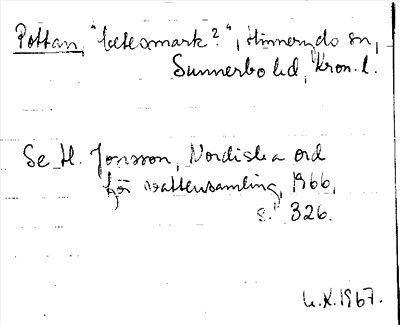 Pottan, "betesmark?", Hinneryds sn,
Sunnerbo hd, Kron. l.
Se H. Jonsson, Nordiska ord
för vattensamling, 1966,
s. 326.
L.K. 1967.